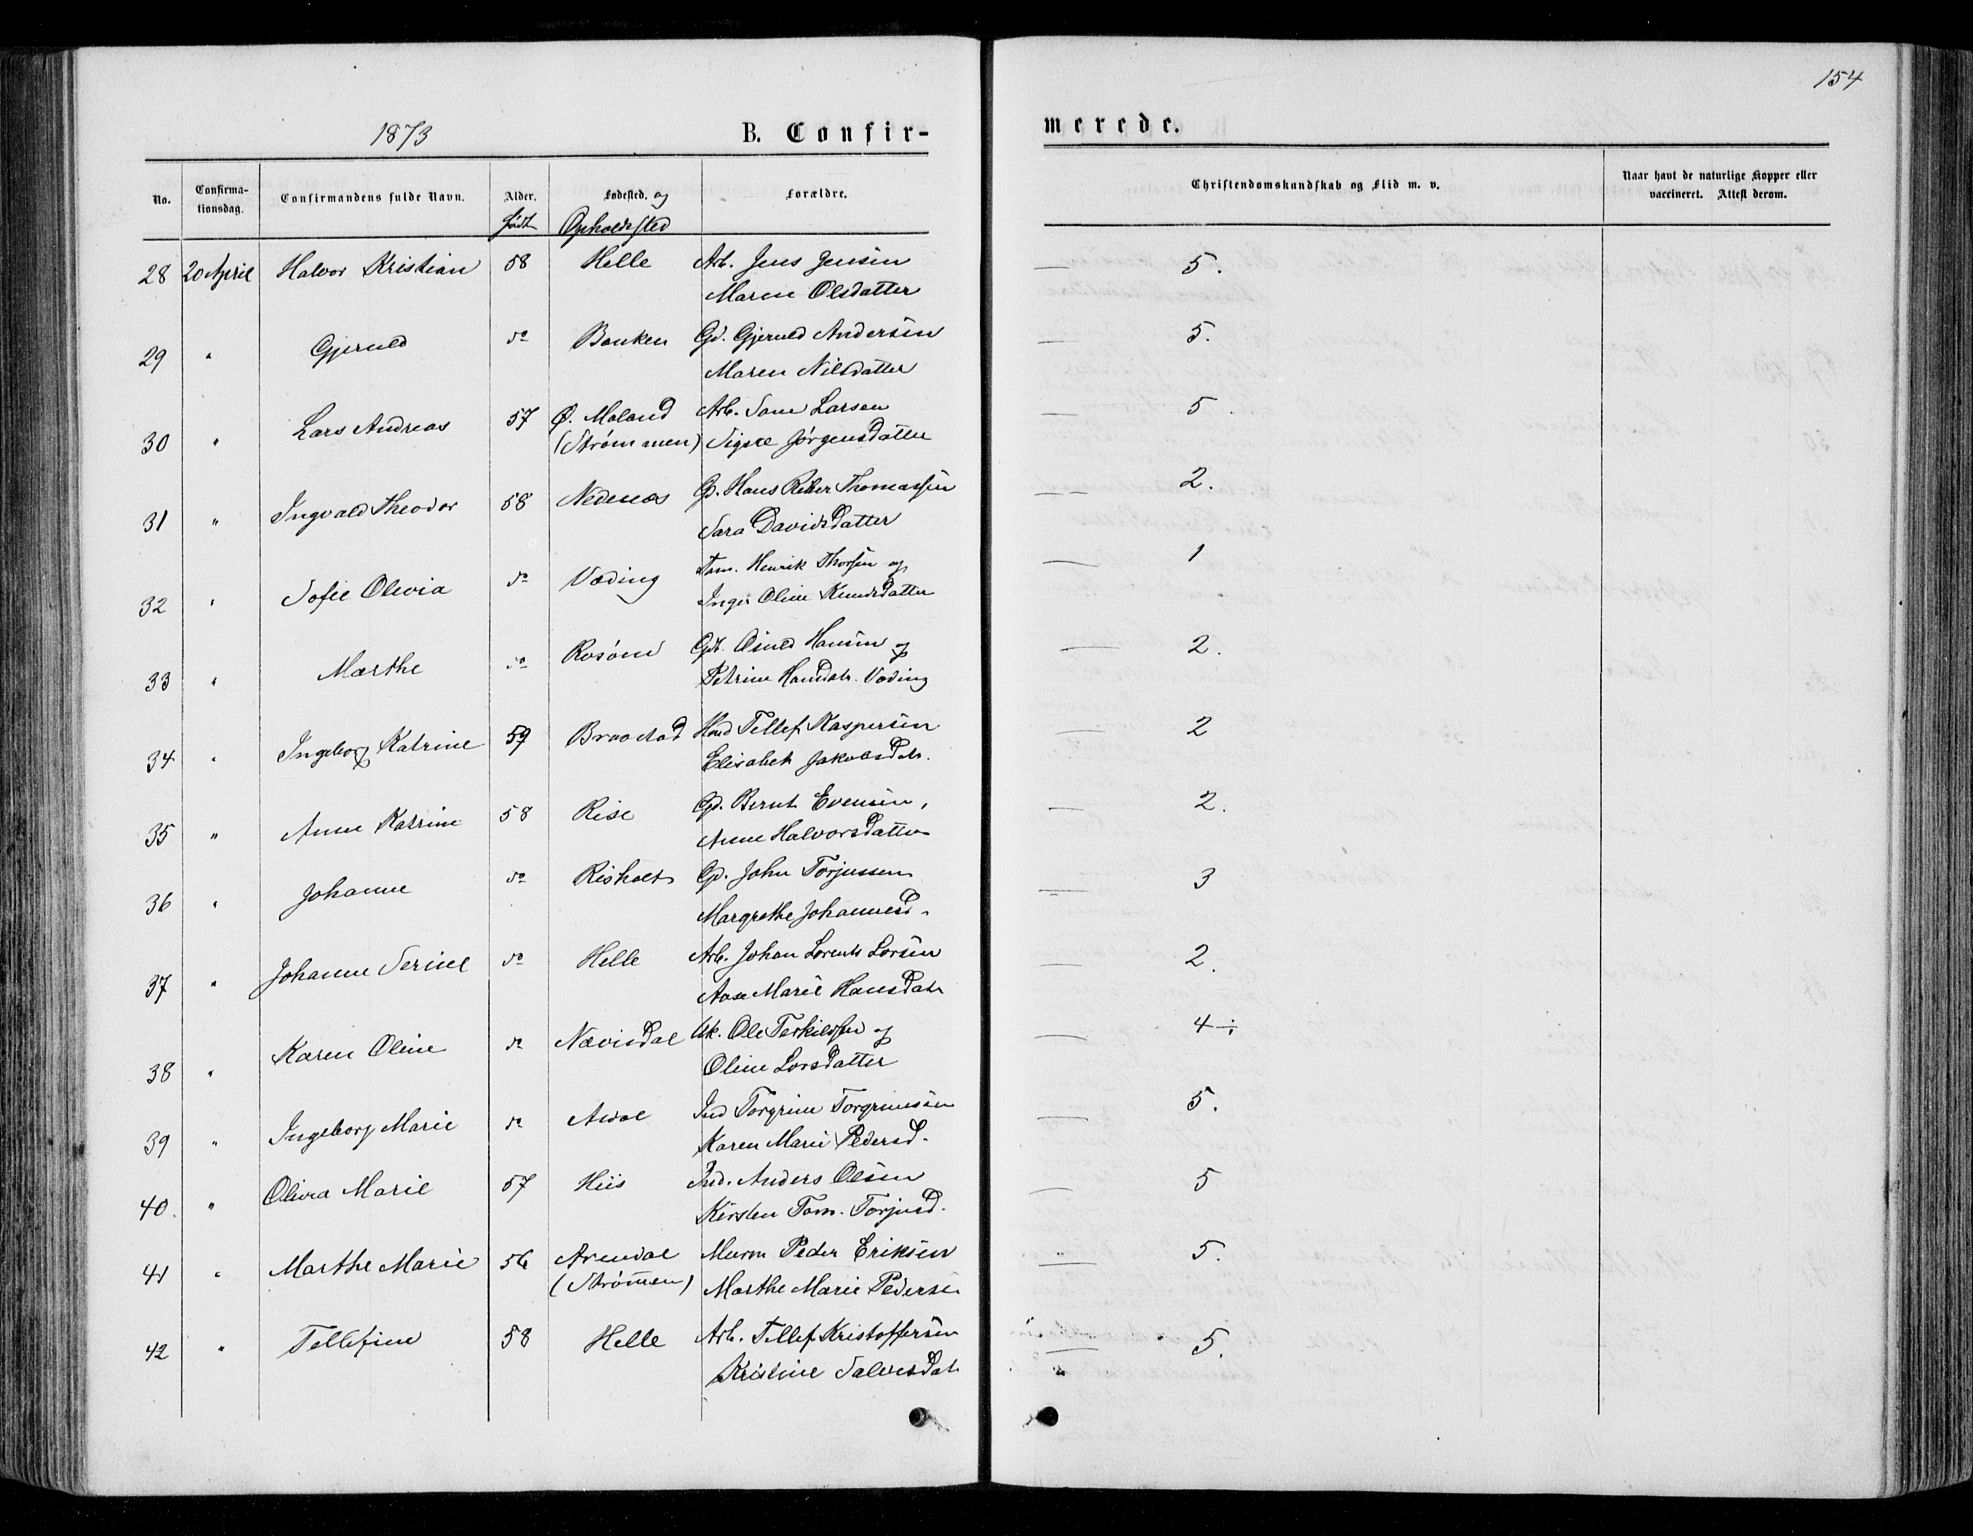 154
1873 B. Confir- merede.
No. Confirma-tionsdag. Confirmandens fulde Navn. Alder. født Fødested. og Opholdssted Forældre. Christendomskundskab og Flid m. v. Naar havt de naturlige Kopper eller vaccineret. Attest derom.
28 20 April Halvor Kristian 58 Helle Arb. Jens Jensen — 5.
Maren Olsdatter
29 " Gjeruld do Banken Gd. Gjeruld Andersen — 5.
Maren Nilsdatter
30 " Lars Andreas 57 Ø. Moland Arb. Larsen — 5.
(Strømmen) Signe Jørgensdatter
31 " Ingvald Theodor 58 Nedenæs G. Hans Thomassen — 2.
Sara Davidsdatter
32 " Sofie Olevia do Væding Tøm. Henrik Thorsen og — 1
Inger Oline Knudsdatter
33 " Marthe do Rosøen Osuld Hansen og — 2.
Petrine Hansdatr. Væding
34 " Ingeborg Katrine 59 Braastad Tellef Kaspersen — 2
Elisabet Jakobsdatr.
35 " Anne Katrine 58 Rise Gd. Bernt Evensen, — 2.
Anne Halvorsdatter
36 " Johanne do Risholt Gd. John Torjussen — 3
Margrethe Johannesd.
37 " Johanne Serine do Helle Arb. Johan Lorents Larsen — 2.
Aase Marie Hansdatr
38 " Karen Oline do Nævisdal Ole Terkildsen og — 4 ÷
Oline Larsdatter
39 " Ingeborg Marie do Asdal Ind Torgrim Torgrimsen — 5.
Karen Marie Pedersd.
40. " Olivia Marie 57 Hiis Ind. Anders Olsen — 5
Kirsten Tom. Torjusd.
41 " Marthe Marie 56 Arendal Murm Peder Eriksen — 5.
(Strømen) Marthe Marie Pederse
42 " Tellefine 58 Helle Arb. Tellef Kristoffersen — 5.
Kristine Salvesdatr